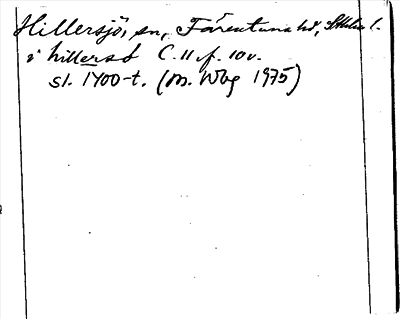 Hillersjö, sn, Färentuna hd, Sthlms l.
i hillersø C. 11 f. 10v.
sl. 1400-t. (M. Wbg 1975)